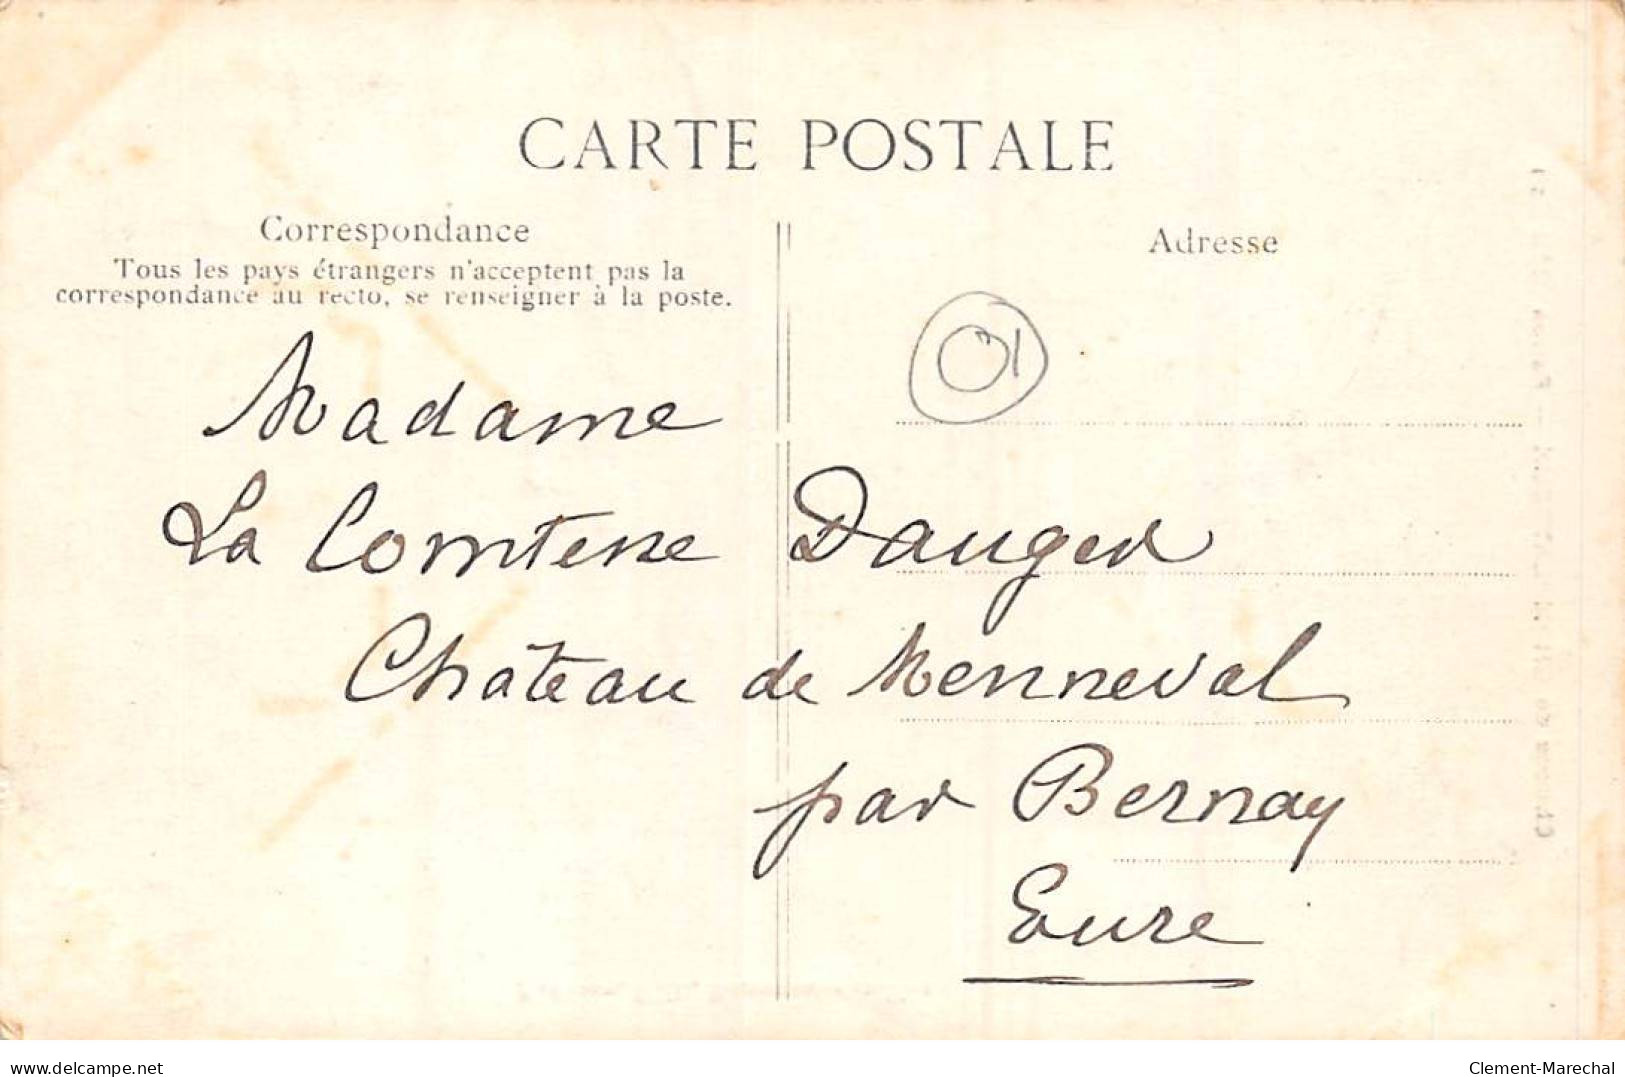 CARTE POSTALE
Correspondance
Tous les pays étrangers n'acceptent pas la
correspondance au recto, se renseigner à la poste.
Adresse
01
Madame
La Comtesse Dauger
Château de Menneval
par Bernay
Eure
www.delcampe.net
Clement-Marechal